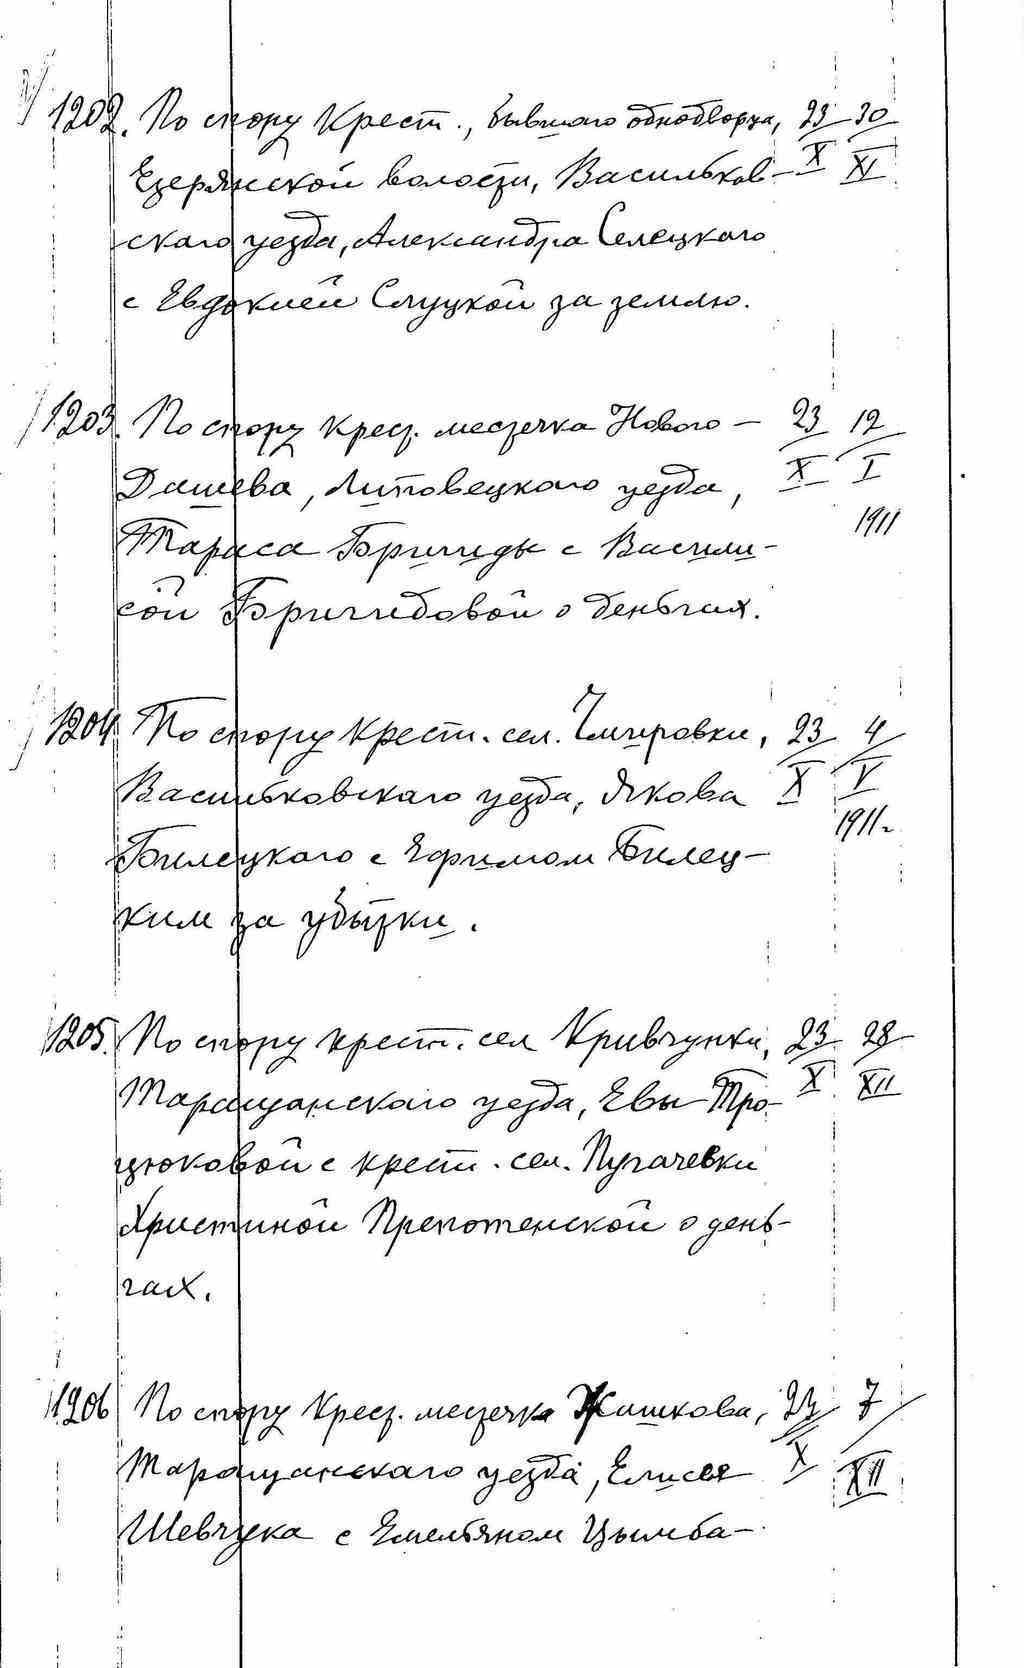 1202. По спору Крест., бывшаго однодворца, 23 30
Езерянской волости, Васильков- X XI
скаго уезда, Александра Селецкаго
с Евдокией Слуцкой за землю.
1203. По спору крест. местечка Нового- 23 12
Дашева, Липовецкаго уезда, X I
1911
Тараса Бригиды с Васили-
сой Бригидовой о деньгах.
1204. По спору крест. сел. Чмыровки, 23 4
Васильковскаго уезда, Якова X V
1911г.
Билецкаго с Ефимом Билец-
ким за убытки.
1205. По спору крест. сел Кривчунки, 23 28
Таращанскаго уезда, Евы Тро- X XII
цюковой с крест. сел. Пугачевки
Христиной Препотенской о день-
гах.
1206 По спору Крест. местечка Жашкова, 23 7
Таращанскаго уезда, Елисея X XII
Шевчука с Емельяном Цымба-